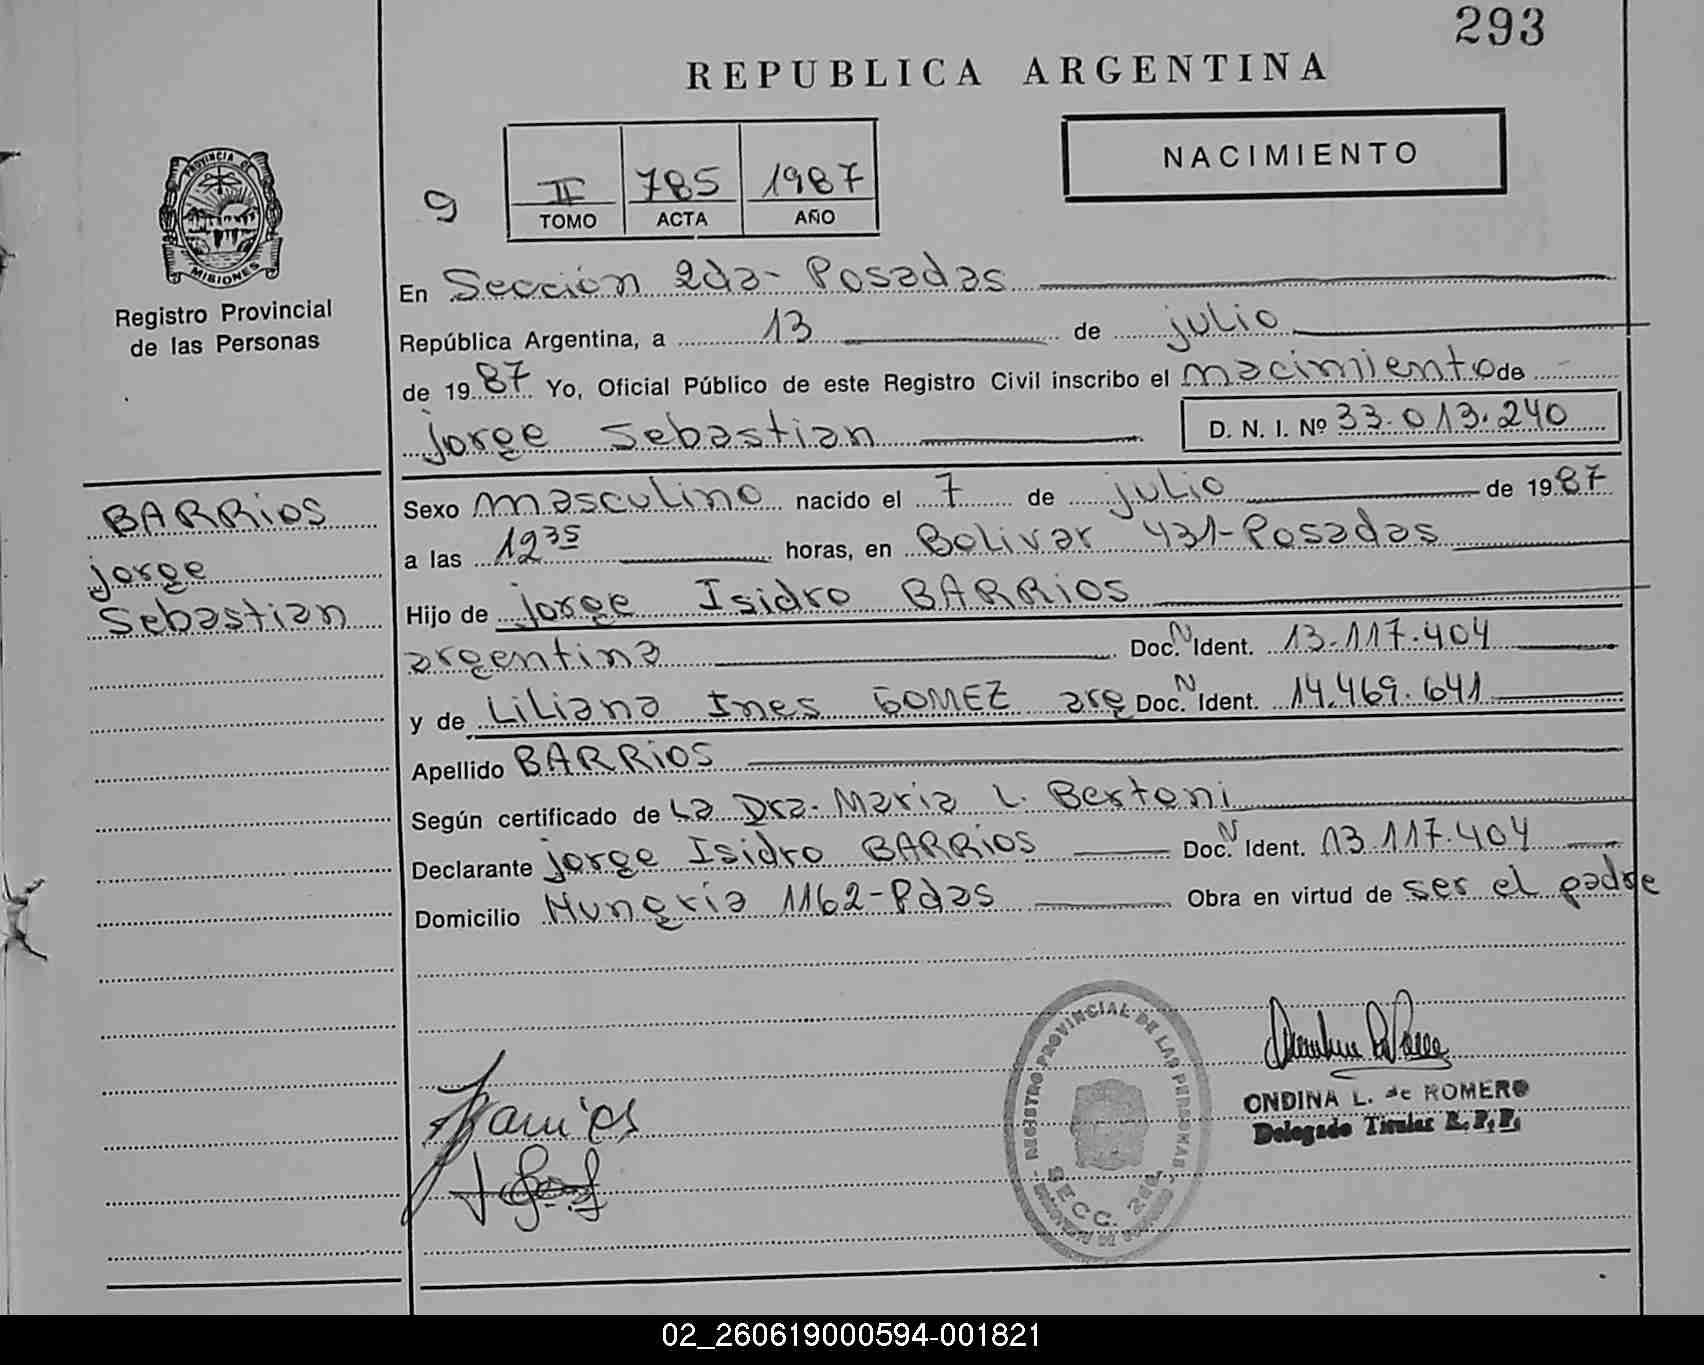 293
REPUBLICA ARGENTINA
NACIMIENTO
9
II 785 1987
TOMO ACTA AÑO
PROVINCIA DE
MISIONES
Registro Provincial
de las Personas
BARRiOS
jorge
Sebastian
En Sección 2da- Posadas
República Argentina, a 13 de julio
de 1987 Yo, Oficial Público de este Registro Civil inscribo el nacimiento de
jorge Sebastian D. N. I. Nº 33.013.240
Sexo masculino nacido el 7 de julio de 1987
a las 12 35 horas, en Bolivar 431-Posadas
Hijo de jorge Isidro BARRiOS
argentina Doc. N Ident. 13.117.404
y de Liliana Ines GOMEZ arg Doc. N Ident. 14.469.641
Apellido BARRiOS
Según certificado de La Dra. Maria L. Bertoni
Declarante jorge Isidro BARRiOS Doc. N Ident. 13.117.404
Domicilio Hungria 1162-Pdas Obra en virtud de ser el padre
REGISTRO PROVINCIAL DE LAS PERSONAS
SECC. 2da.
ONDINA L. de ROMERO
Delegado Titular R. P. P.
02_260619000594-001821